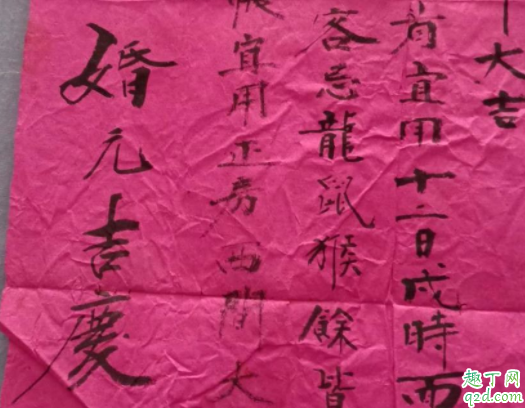 大吉
肯宜用十二日戌時西
客忌龍鼠猴餘皆
宜用正房西間大
婚元吉慶
趣丁网
q2d.com